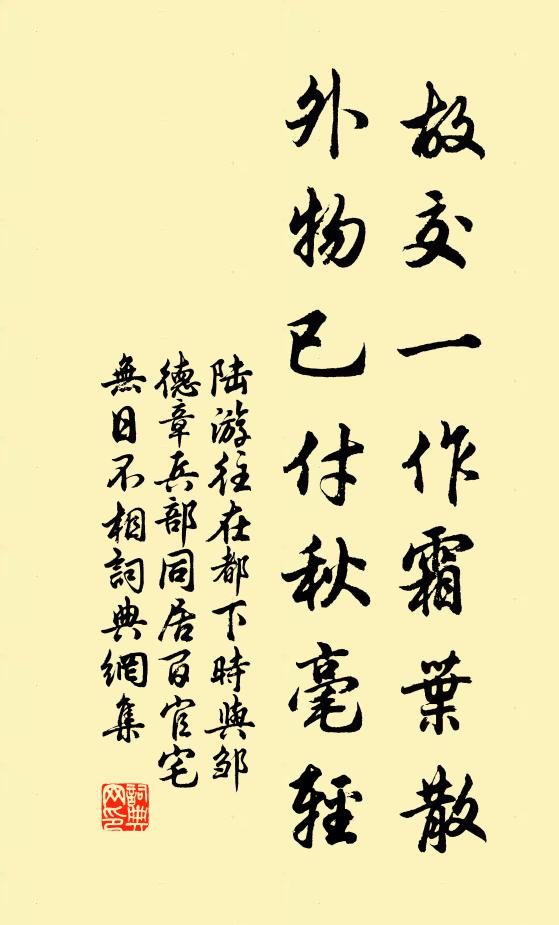 故交一作霜葉散
外物已付秋毫輕
陆游往在都下時與邹
德章兵部同居百官宅
無日不相詞典網集
詞典
网印